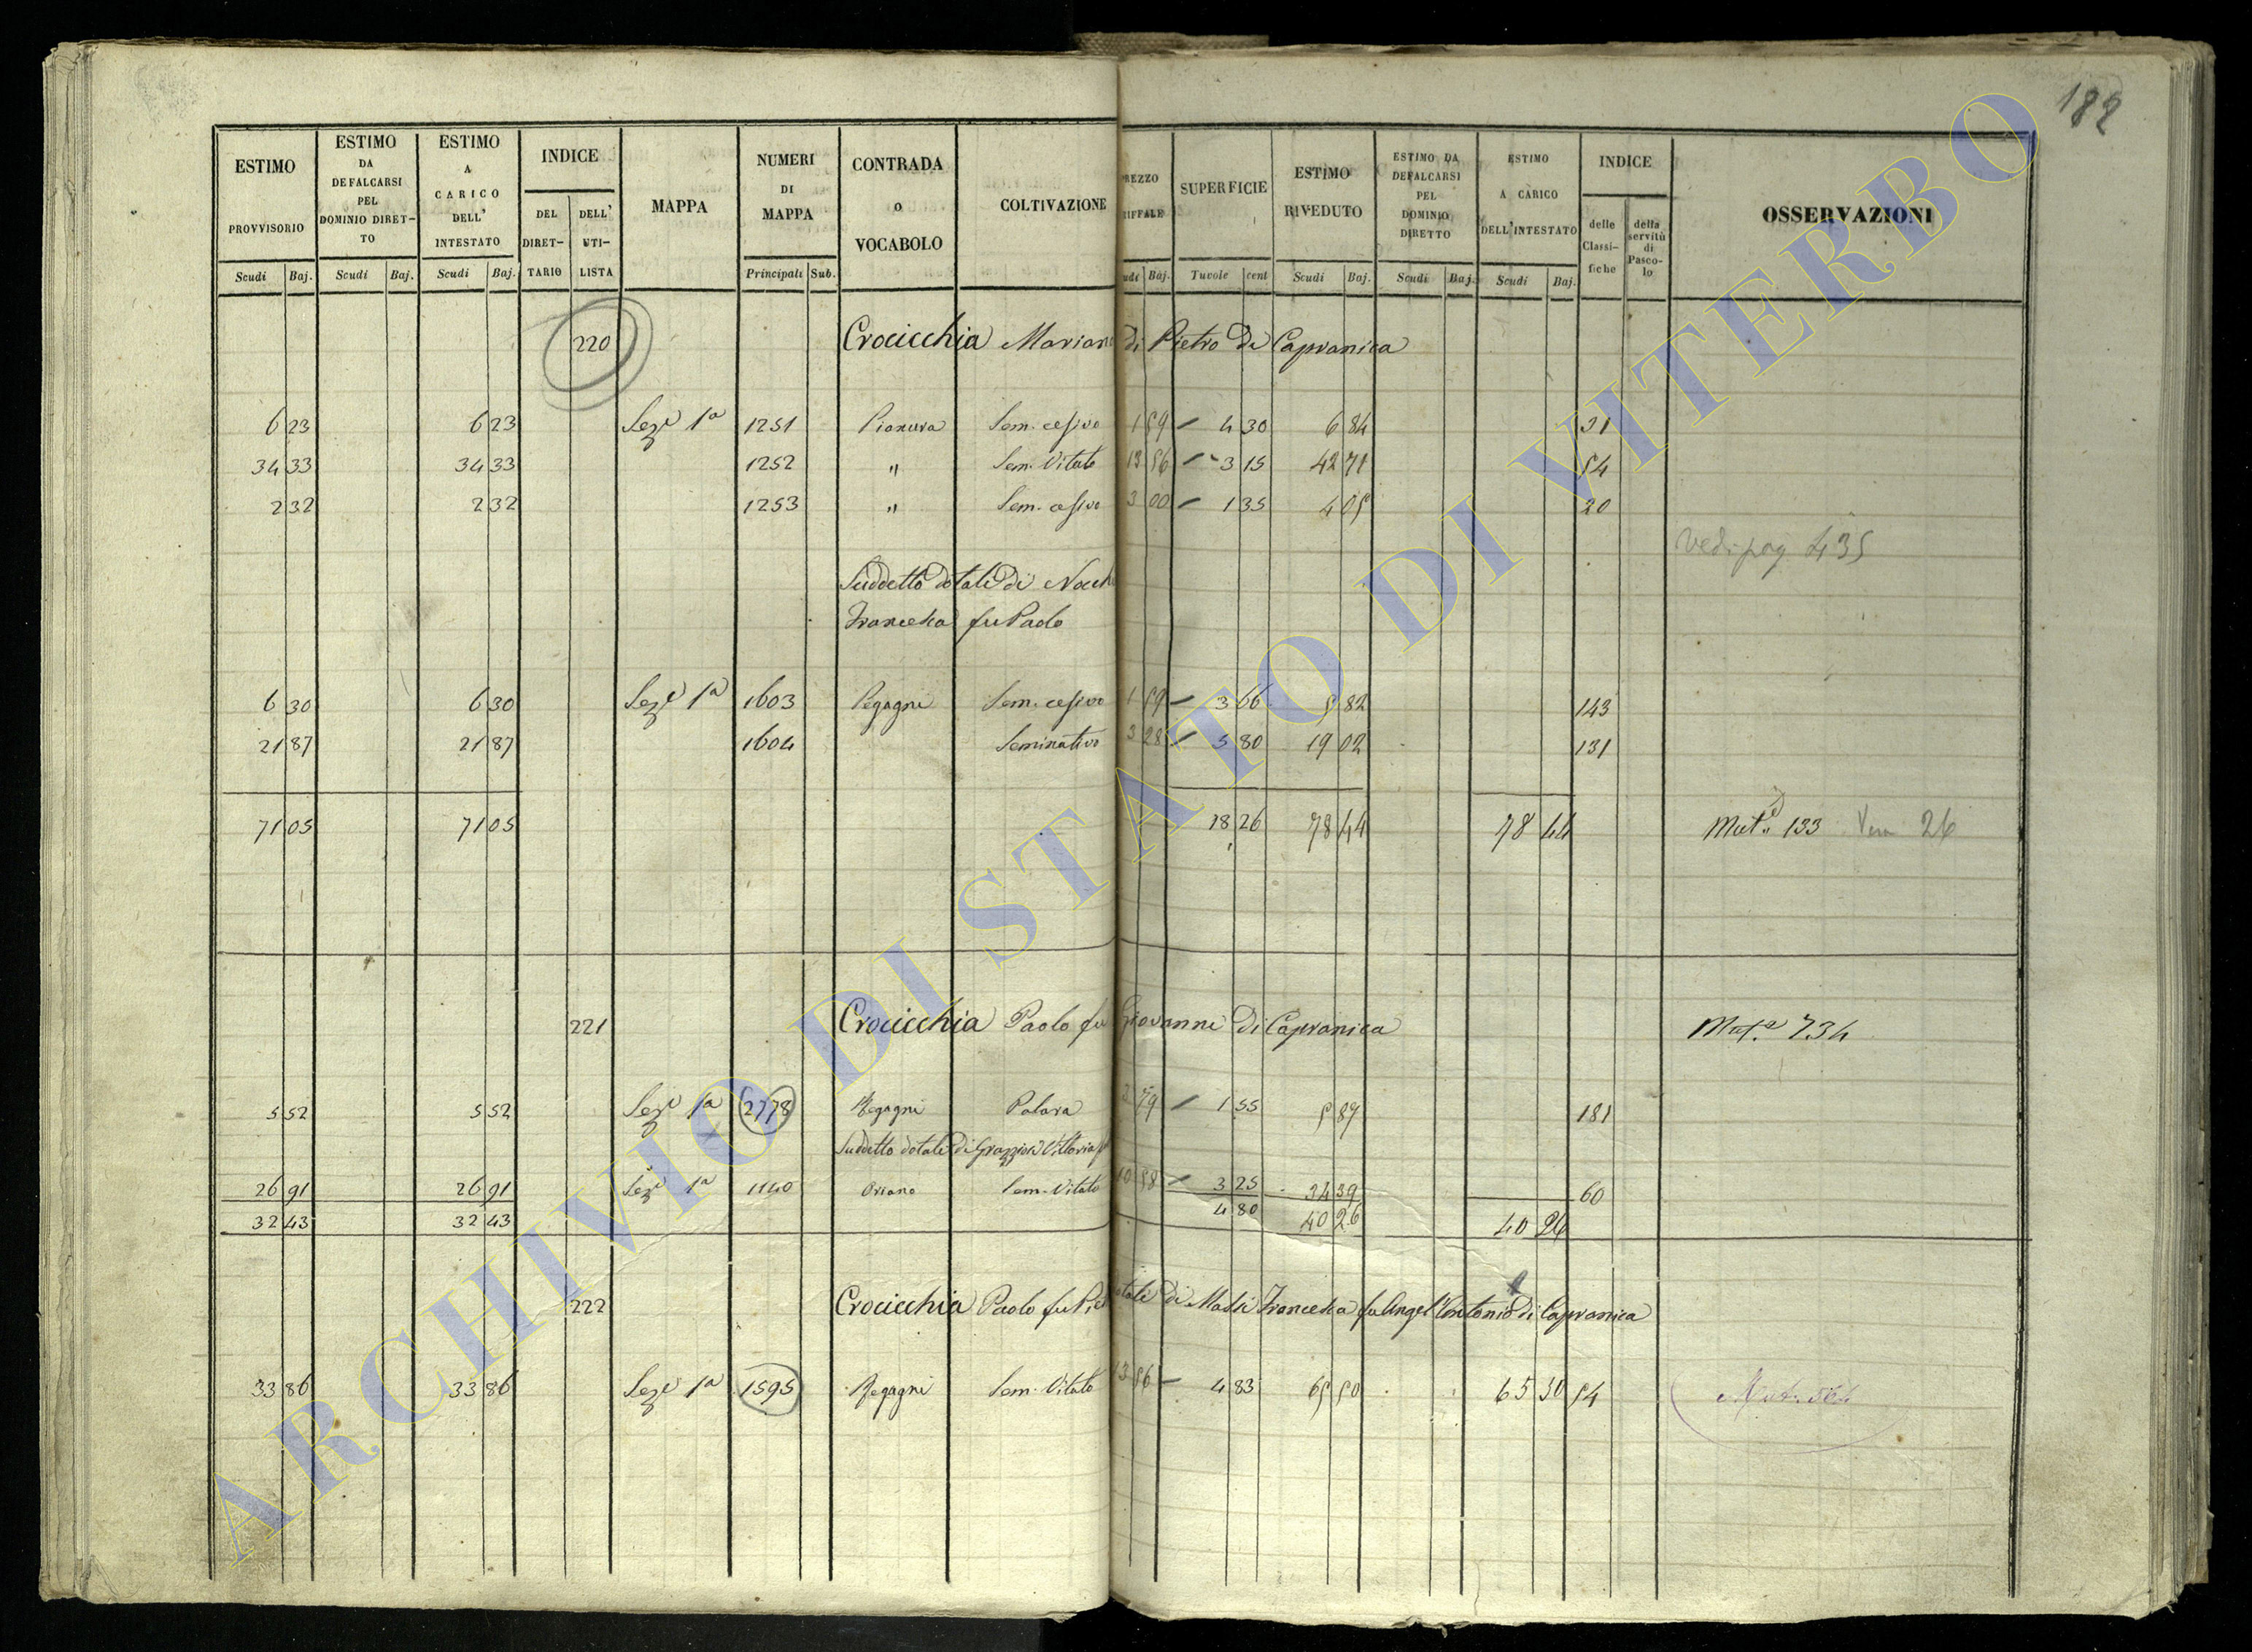 182
ESTIMO PROVVISORIO Scudi Baj.
ESTIMO DA DEFALCARSI PEL DOMINIO DIRET-TO Scudi Baj.
ESTIMO A CARICO DELL' INTESTATO Scudi Baj.
INDICE DEL DIRET-TARIO DELL' UTI-LISTA
MAPPA
NUMERI DI MAPPA Principali Sub.
CONTRADA o VOCABOLO
COLTIVAZIONE
REZZO RIFFALE udi Baj.
SUPERFICIE Tavole cent
ESTIMO RIVEDUTO Scudi Baj.
ESTIMO DA DEFALCARSI PEL DOMINIO DIRETTO Scudi Baj.
ESTIMO A CARICO DELL'INTESTATO Scudi Baj.
INDICE delle Classi-fiche della servitù di Pasco-lo
OSSERVAZIONI
220 Crocicchia Mariano di Pietro di Capranica
6 23 6 23 Sezê 1ª 1251 Pianura Sem. cesivo 1 59 4 30 6 84 31
34 33 34 33 1252 " Sem. Vitato 13 56 3 15 42 71 54
2 32 2 32 1253 " Sem. cesivo 3 00 1 35 4 05 20
Vedi pag 435
Suddetto dotale di
Francesca fu Paolo
6 30 6 30 Sezê 1ª 1603 Pegagni Sem. cesivo 1 59 3 66 5 82 143
21 87 21 87 1604 Seminativo 3 28 5 80 19 02 131
71 05 71 05 18 26 78 44 78 44 Mut. 133 26
221 Crocicchia Paolo fu Giovanni di Capranica Mut.ª 734
5 52 5 52 Sezê 1ª 2778 Regagni 3 79 1 55 5 87 181
Suddetto dotale di Vittoria
26 91 26 91 Sezê 1ª 1140 Oriano Sem. Vitato 10 58 3 25 34 39 60
32 43 32 43 4 80 40 26 40 26
222 Crocicchia Paolo fu dotale di Francesca fu Angel'Antonio di Capranica
33 86 33 86 Sezê 1ª 1595 Regagni Sem. Vitato 13 56 4 83 65 50 65 50 54 Mut. 564
ARCHIVIO DI STATO DI VITERBO